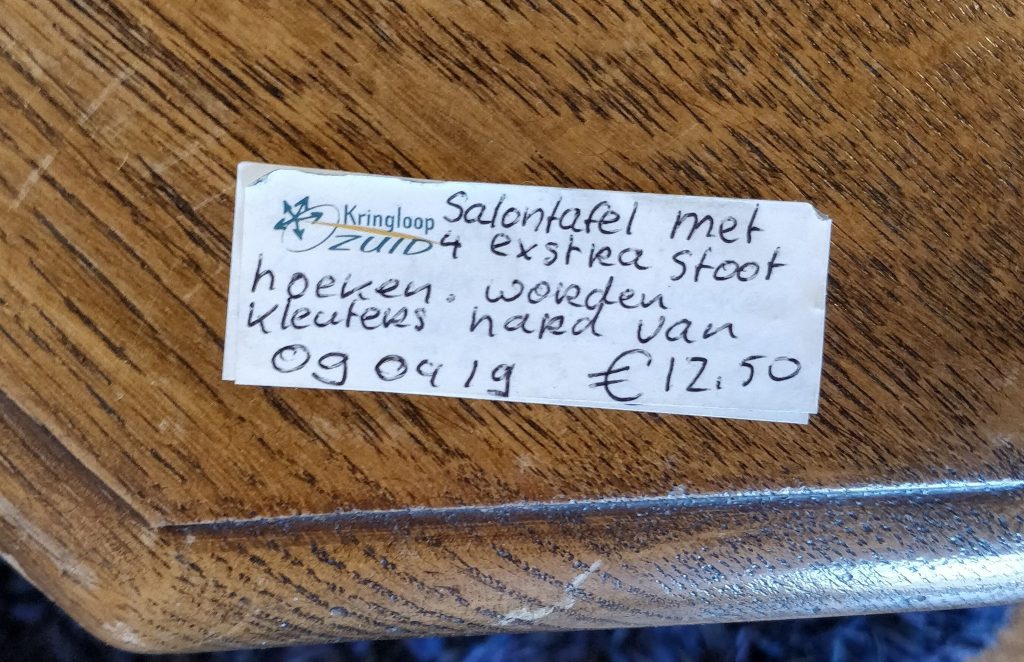 Kringloop Salontafel met
ZUID 4 exstra stoot
hoeken. worden
kleuters hard van
09 04 19 € 12.50